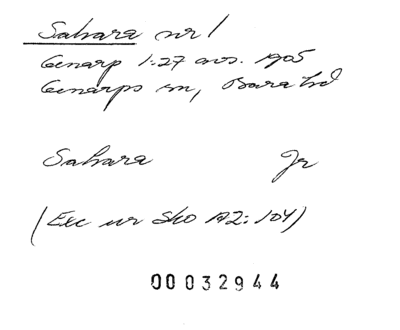 Sahara nr 1
Genarp 1:27 avs. 1905
Genarps sn, Bara hd
Sahara Jr
(Exc ur Sko A2:104)
00032944